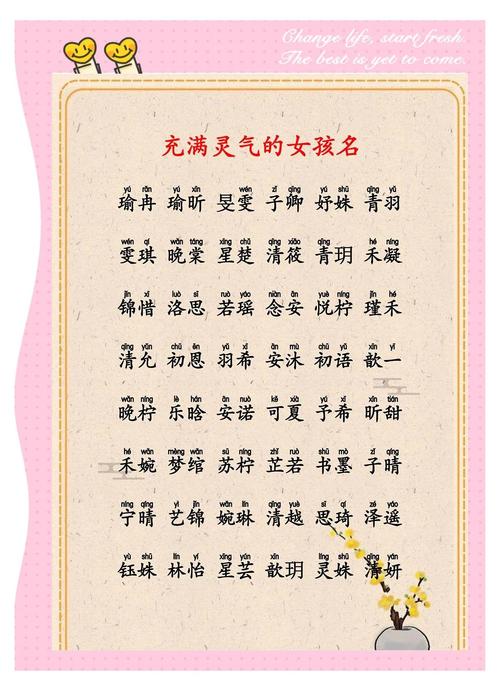 Change life, start fresh.
The best is yet to come.
充满灵气的女孩名
yú rǎn yú xīn wén zǐ qīng yú shū qīng yǔ
瑜冉 瑜昕 旻雯 子卿 妤姝 青羽
wén qí wǎn táng xīng chǔ qīng xiǎo qīng yuè hé níng
雯琪 晚棠 星楚 清筱 青玥 禾凝
jǐn xī luò sī ruò yáo niàn ān yuè níng jǐn hé
锦惜 洛思 若瑶 念安 悦柠 瑾禾
qīng yǔn chū ēn yǔ xī ān mù chū yǔ xīn yī
清允 初恩 羽希 安沐 初语 歆一
wǎn níng lè hán ān nuò kě xià yǔ xī xīn tián
晚柠 乐晗 安诺 可夏 予希 昕甜
hé wǎn mèng wǎn sū níng zhǐ ruò shū mò zǐ qíng
禾婉 梦绾 苏柠 芷若 书墨 子晴
níng qíng yì jǐn wǎn lín qīng yuè sī qí zé yáo
宁晴 艺锦 婉琳 清越 思琦 泽遥
yù shū lín yí xīng yún xīn yuè líng shū qīng yán
钰姝 林怡 星芸 歆玥 灵姝 清妍